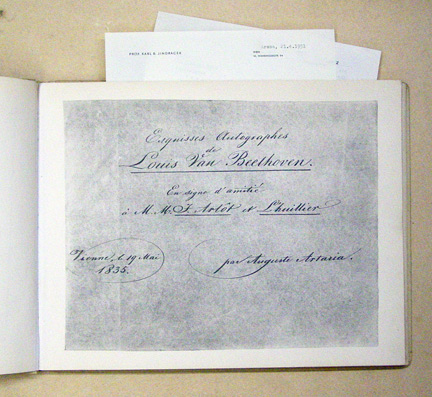 PROF. KARL B. JIRGMAGER
21.4.1951
Esquisses Autographes
de
Louis Van Beethoven.
En signe d'amitié
à M.M. J. Artôt et Lhuillier
Vienne, l. 19 Mai
1835.
par Auguste Artaria.